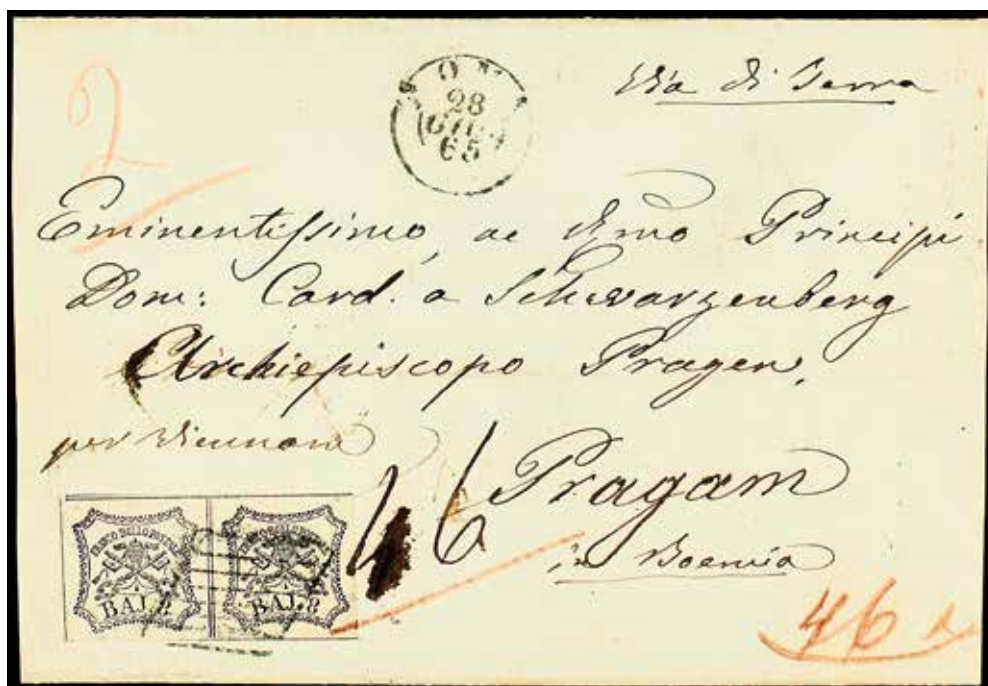 2
ROMA
28
GIUG
65
Via di Terra
Eminentissimo, ac Rmo Principi
Dom: Card. a Schwarzenberg
Archiepiscopo Pragen.
per Viennam
46
Pragam
in Boemia
FRANCO BOLLO POSTALE
BAJ. 8
FRANCO BOLLO POSTALE
BAJ. 8
46